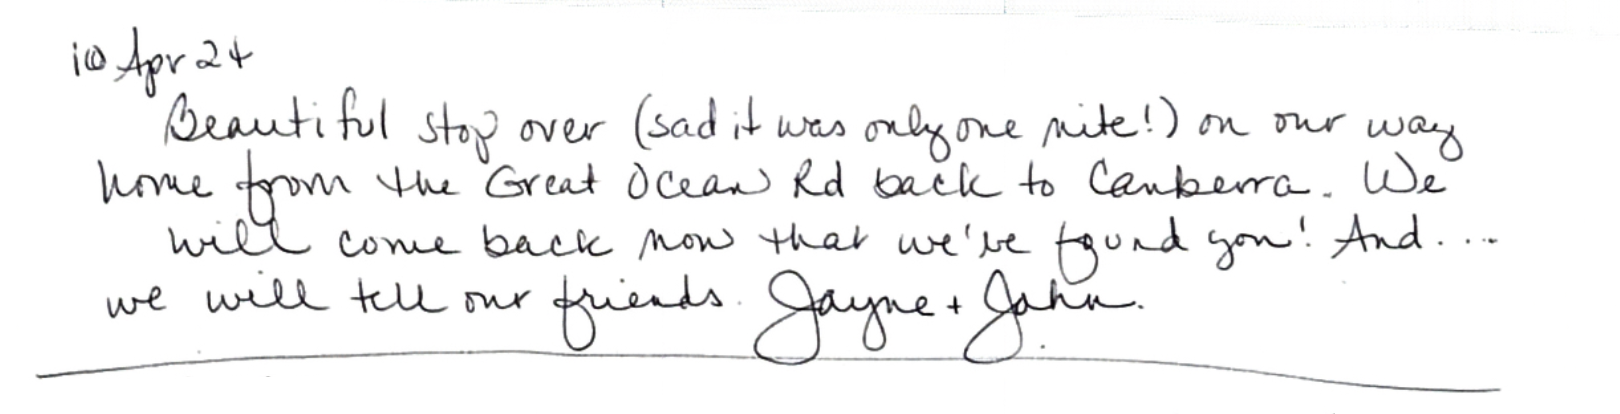 10 Apr 24
Beautiful stop over (sad it was only one nite!) on our way
home from the Great Ocean Rd back to Canberra. We
will come back now that we've found you! And....
we will tell our friends. Jayne + John.